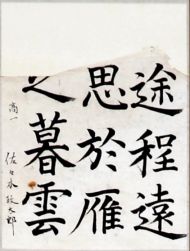 途程遠
思於雁
之暮雲
高一 佐々木 太郎